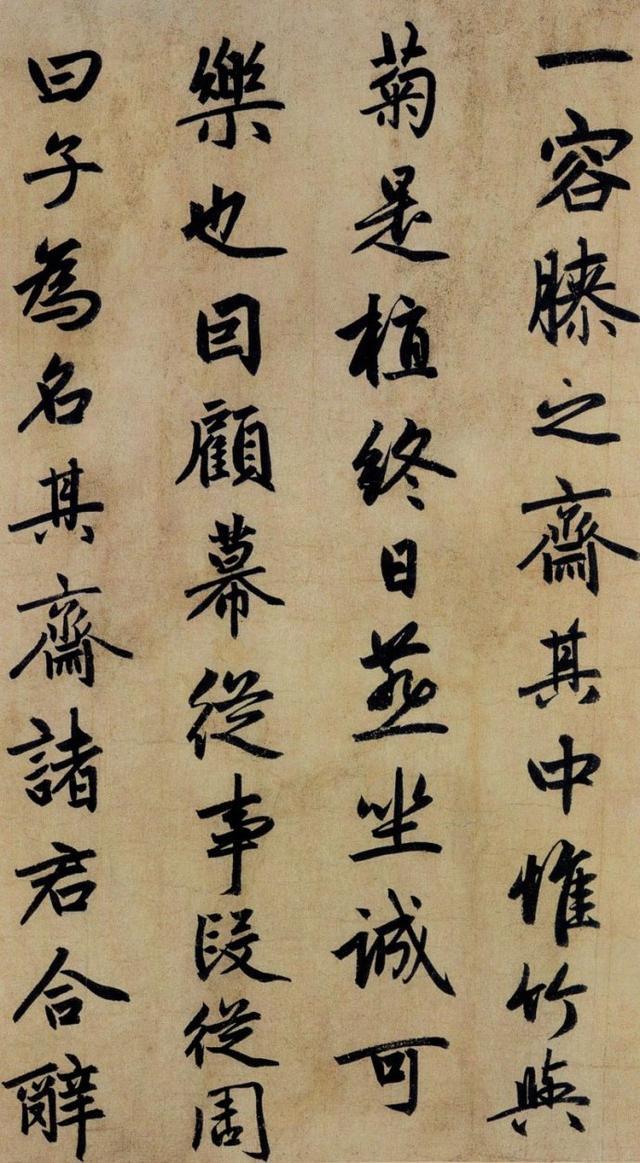 一容膝之齋其中惟竹與
菊是植終日燕坐誠可
樂也囙顧幕從事段從周
曰子為名其齋諸君合辭